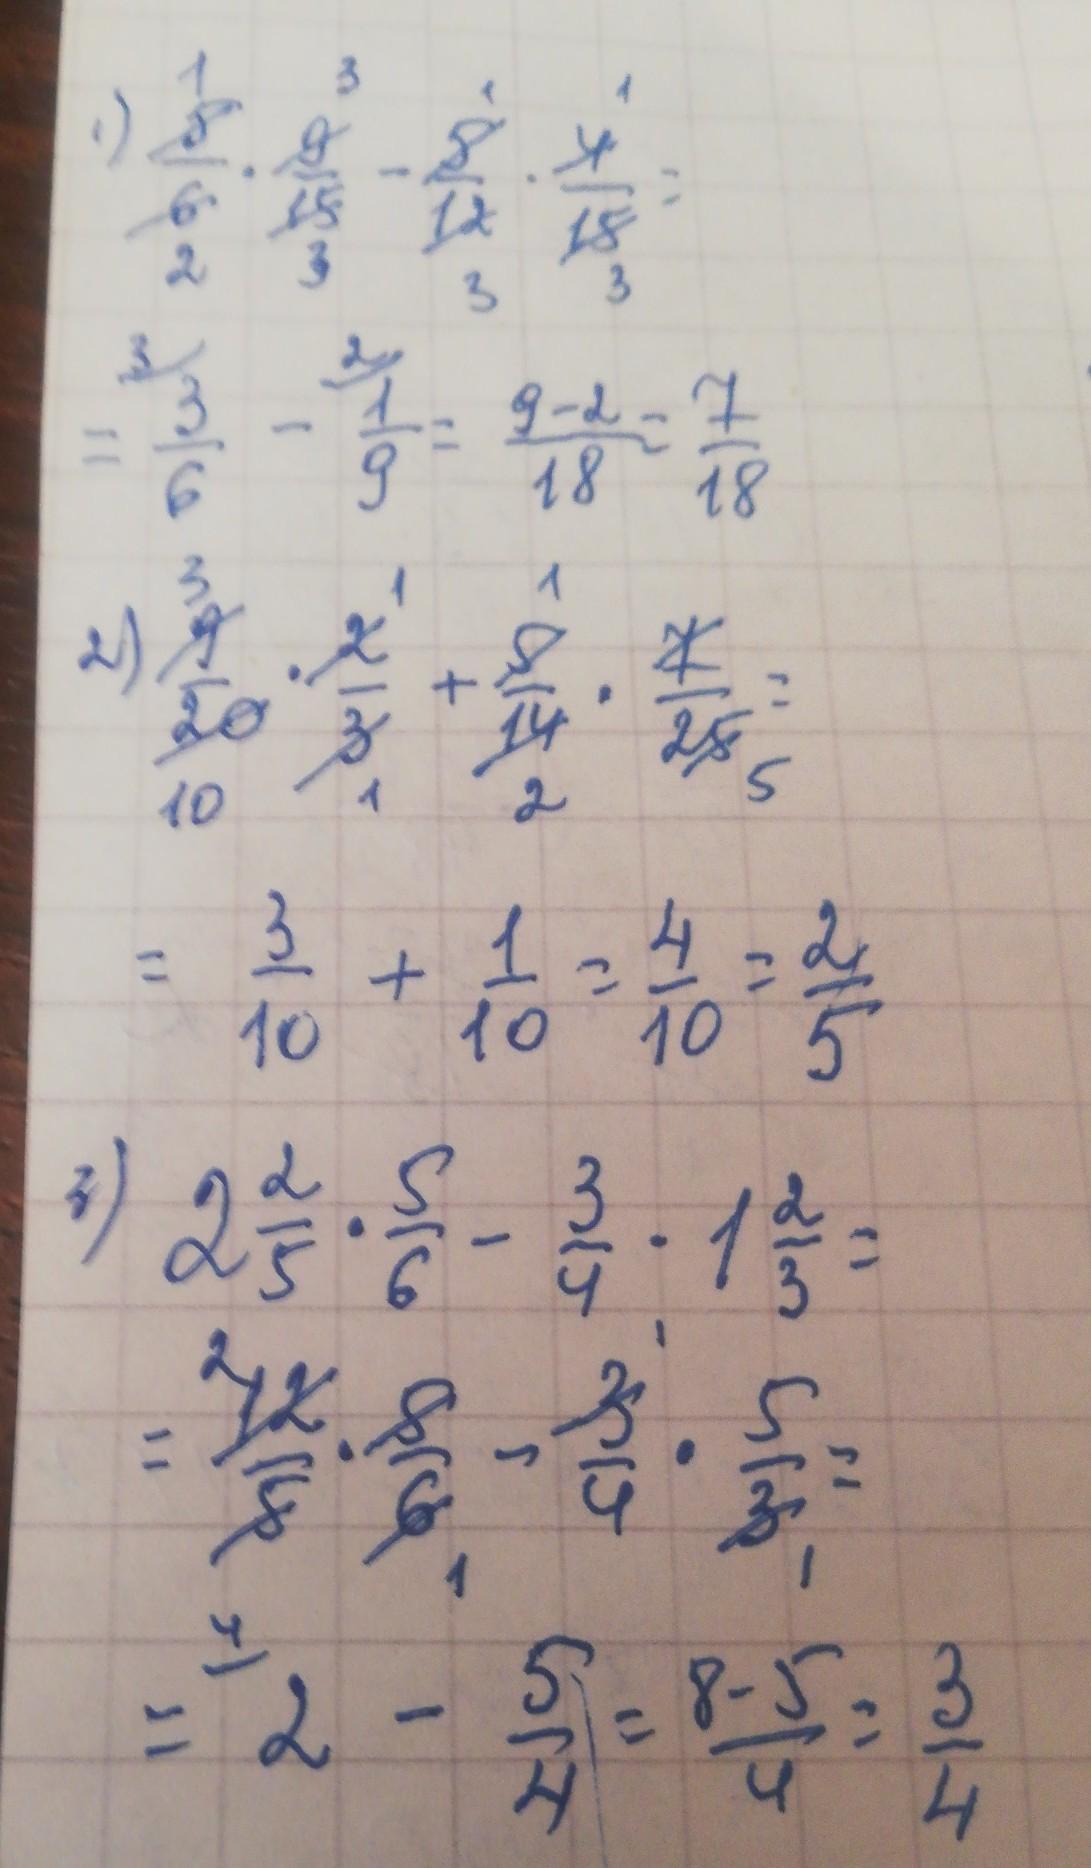 1) 5/6 · 9/15 - 5/12 · 4/15 =
= 3/6 - 1/9 = (9-2)/18 = 7/18
2) 9/20 · 2/3 + 5/14 · 7/25 =
= 3/10 + 1/10 = 4/10 = 2/5
3) 2 2/5 · 5/6 - 3/4 · 1 2/3 =
= 12/5 · 5/6 - 3/4 · 5/3 =
= 2 - 5/4 = (8-5)/4 = 3/4